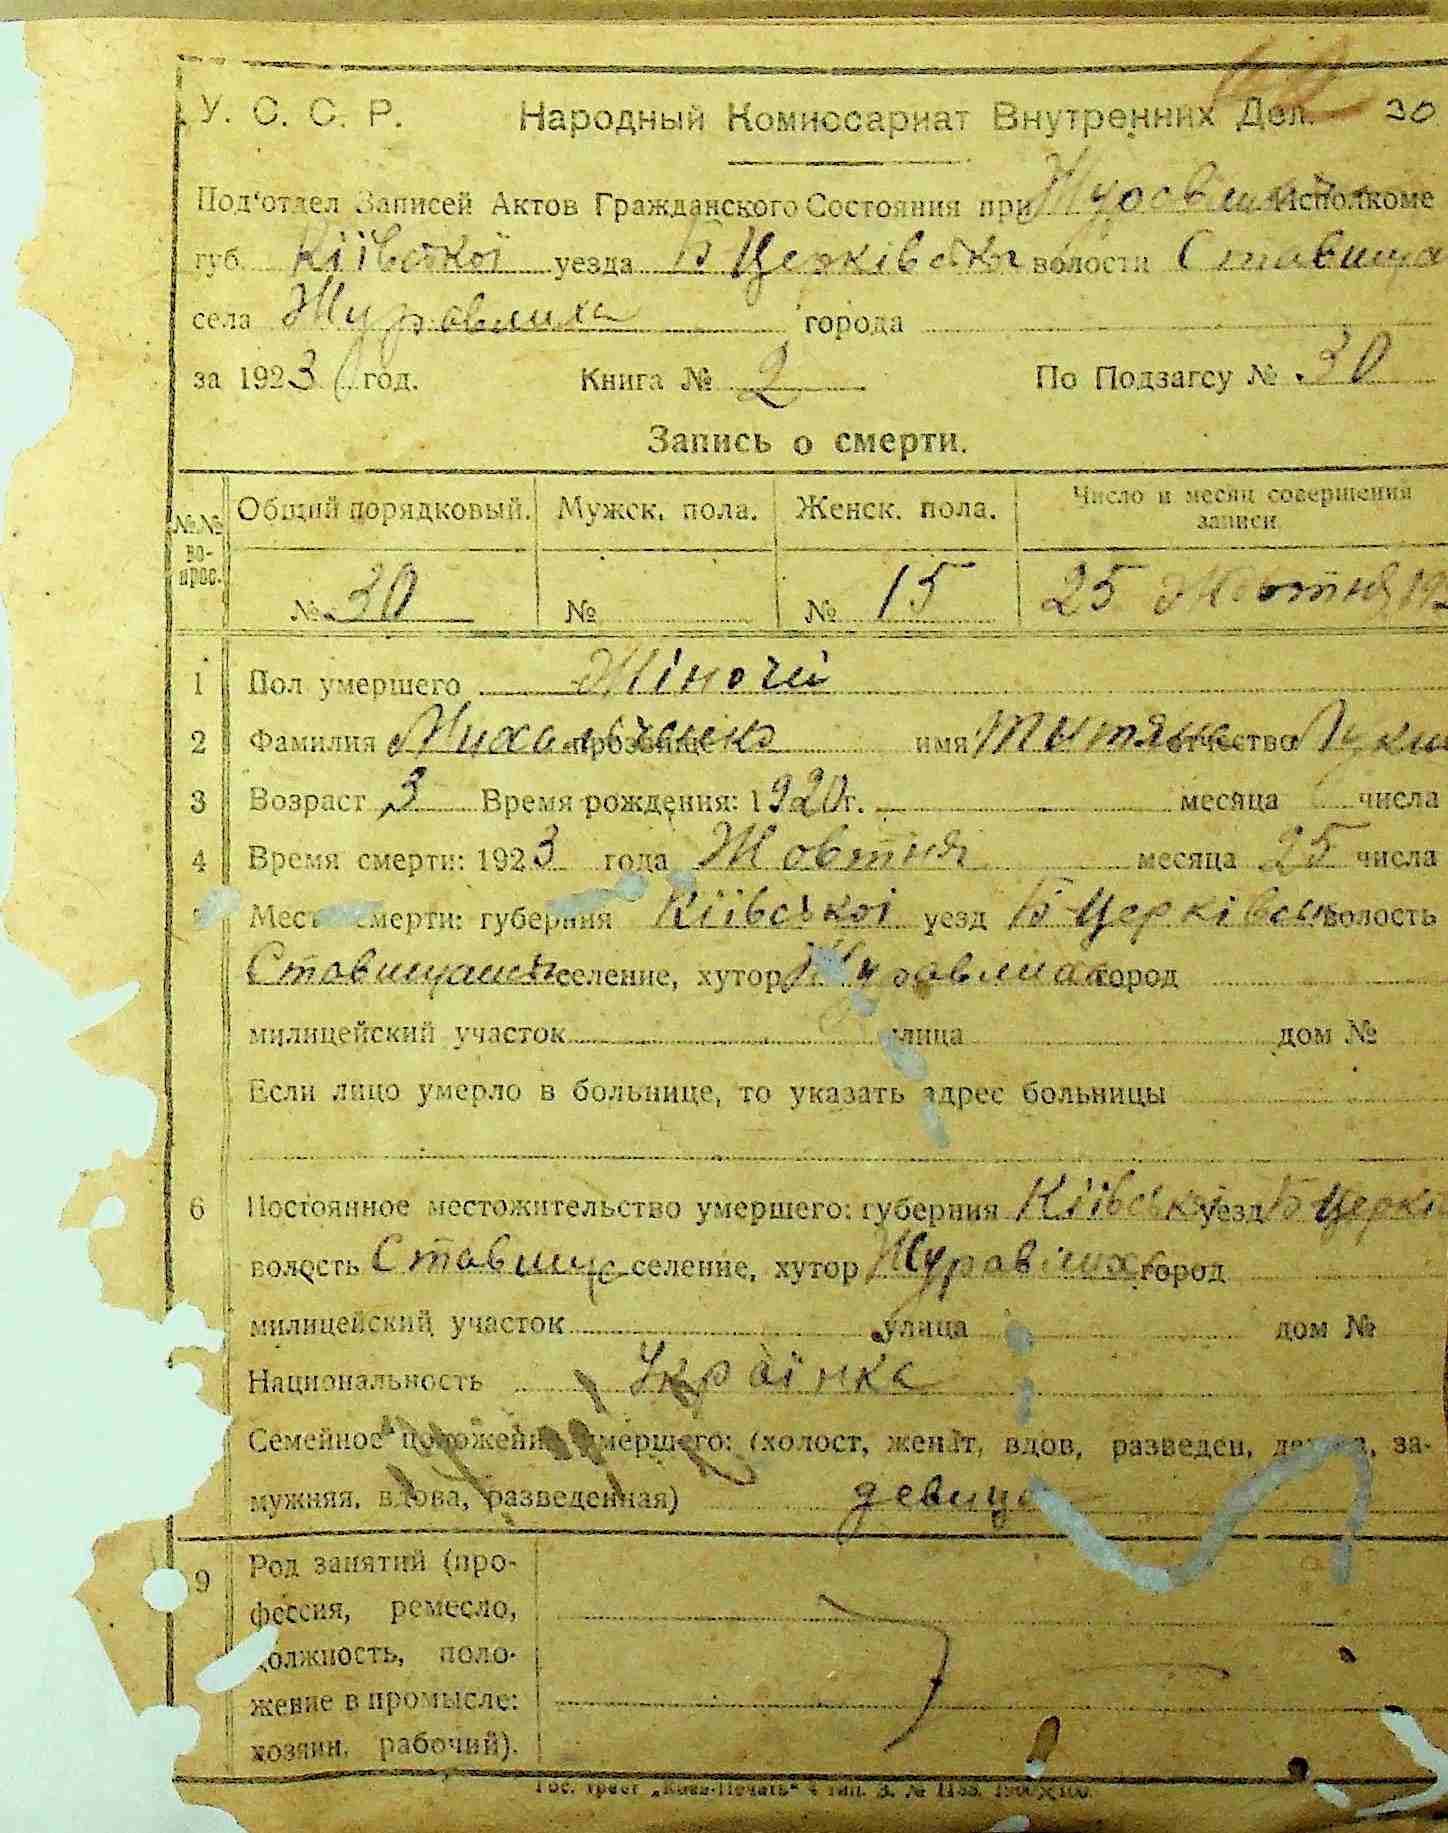 У. С. С. Р. Народный Комиссариат Внутренних Дел. 30
Под'отдел Записей Актов Гражданского Состояния при Исполкоме
губ. Київської уезда Б Церківської волости Ставища
села Журавлиха города
за 1923 год. Книга № 2 По Подзагсу № 30
Запись о смерти.
№№ вопрос. Общий порядковый. Мужск. пола. Женск. пола. Число и месяц совершения записи
№ 30 № № 15 25 Жовтня 192
1 Пол умершего Жіночій
2 Фамилия Михальченко прозвище имя Тытяна отчество Луки
3 Возраст 3 Время рождения: 1920 г. месяца числа
4 Время смерти: 1923 года Жовтня месяца 25 числа
Место смерти: губерния Київської уезд Б Церківськ волость
селение, хутор Журавлиха город
милицейский участок улица дом №
Если лицо умерло в больнице, то указать адрес больницы
6 Постоянное местожительство умершего: губерния Київської уезд Б Церкі
волость Ставищ селение, хутор Журавлиха город
милицейский участок улица дом №
Национальность Українка
Семейное положение умершего: (холост, женат, вдов, разведен, девица, за-
мужняя, вдова, разведенная) девица
9 Род занятий (про-
фессия, ремесло,
должность, поло-
жение в промысле:
хозяин, рабочий).
Гос. трест „Киев-Печать“ 4 тип. З. №